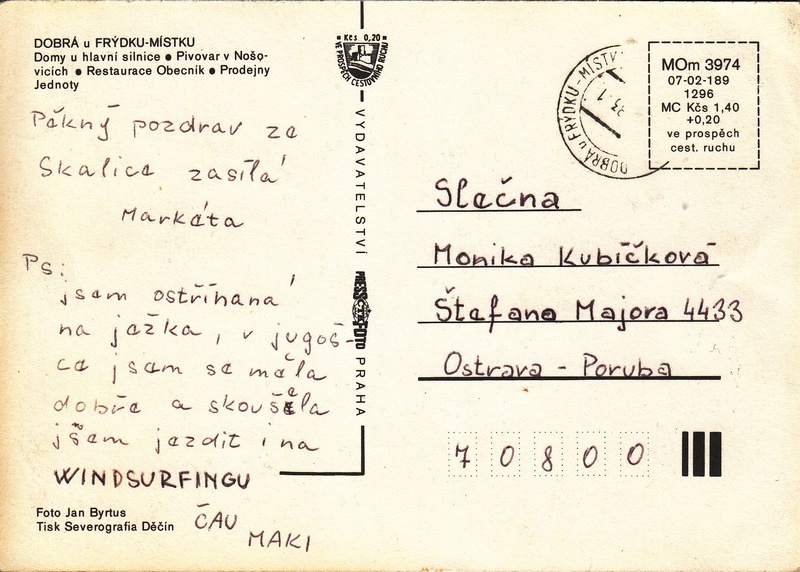 DOBRÁ u FRÝDKU-MÍSTKU
Domy u hlavní silnice ● Pivovar v Nošo-
vicích ● Restaurace Obecník ● Prodejny
Jednoty
Kčs 0,20
VE PROSPĚCH CESTOVNÍHO RUCHU
DOBRÁ u FRÝDKU-MÍSTKU
MOm 3974
07-02-189
1296
MC Kčs 1,40
+0,20
ve prospěch
cest. ruchu
Pěkný pozdrav ze
Skalice zasílá
Markéta
Ps:
jsem ostříhaná
na ježka, v jugoš-
ce jsem se měla
dobře a skoušela
jsem jezdit i na
WINDSURFINGU
ČAU
MAKI
VYDAVATELSTVÍ
PRESSFOTO
PRAHA
Slečna
Monika Kubíčková
Štefana Majora 4433
Ostrava - Poruba
70800
Foto Jan Byrtus
Tisk Severografia Děčín